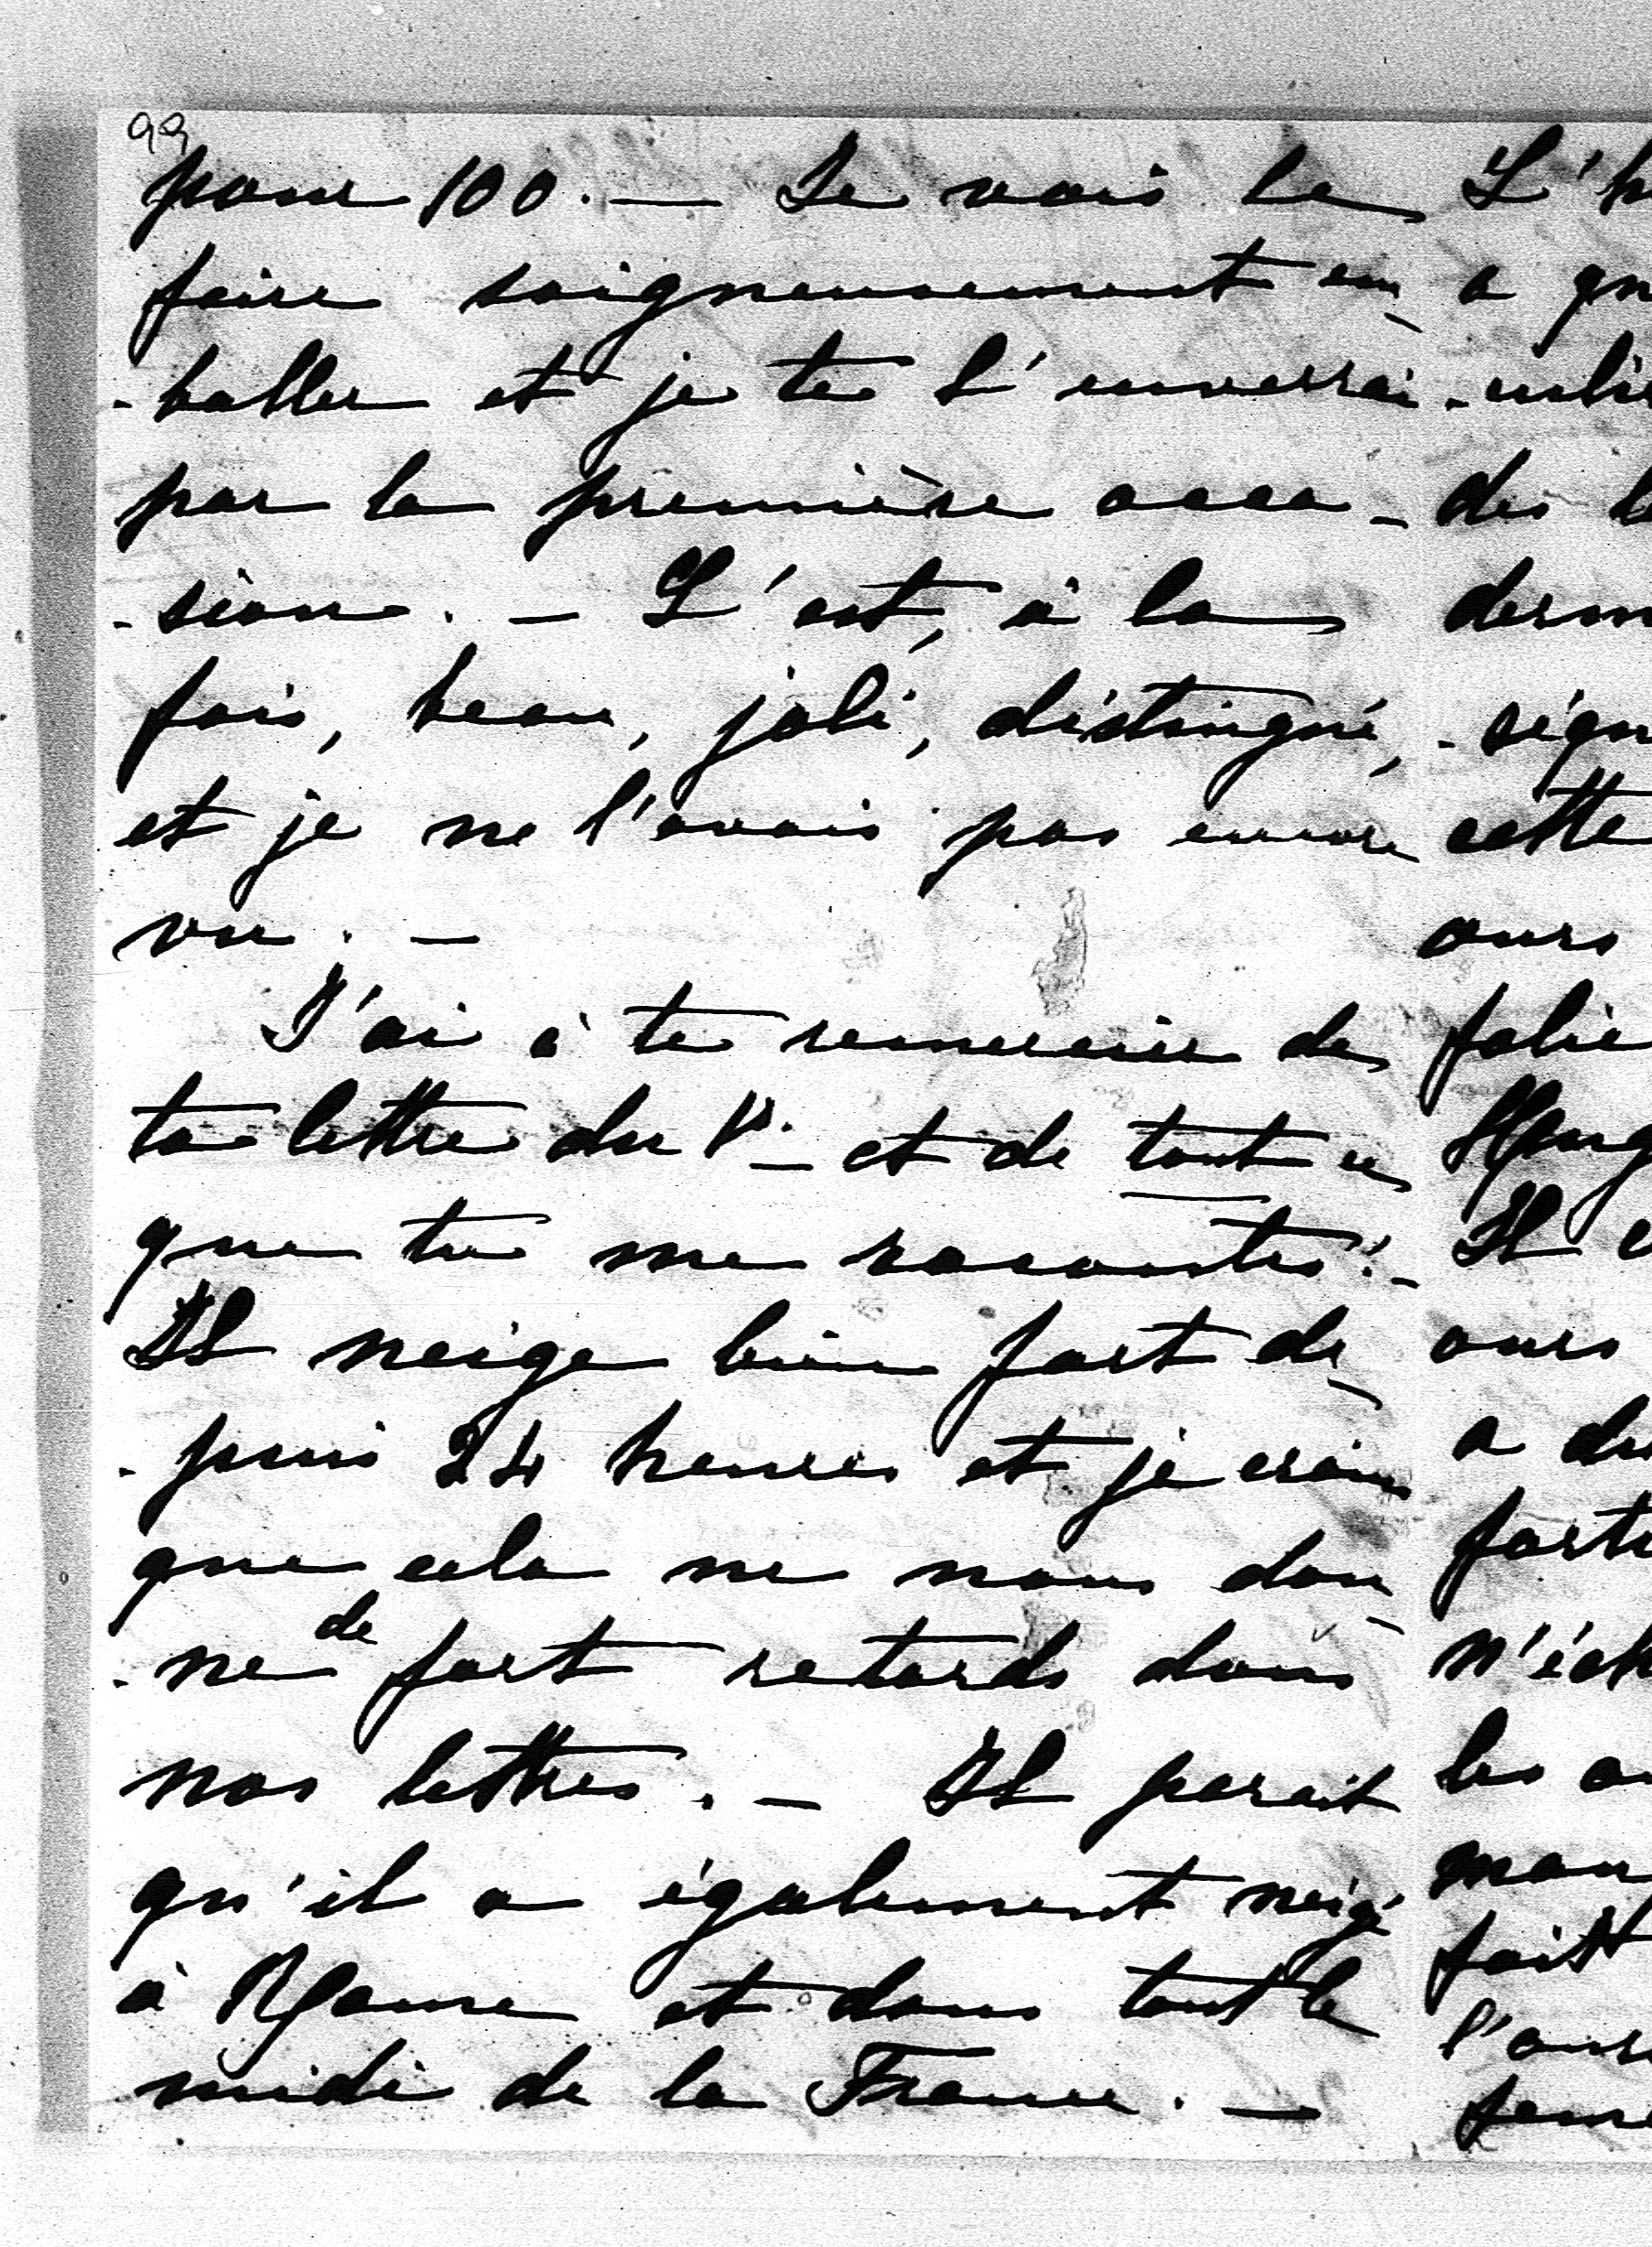 99
pour 100. — Je vais le
faire soigneusement em-
-baller et je te l'enverrai
par la première occa-
-sion. — C'est, à la
fois, beau, joli, distingué,
et je ne l'avais pas encore
vu. —
J'ai à te remercier de
ta lettre du 1er — et de tout ce
que tu me racontes. —
Il neige bien fort de-
-puis 24 heures et je crains
que cela ne nous don-
-ne de fort retards dans
nos lettres. — Il parait
qu'il a également neigé
à Rome et dans tout le
midi de la France. —
L'h
a qu
des l
dern
-sign
cette
ours
folie
Il e
ours
a du
forti
n'éch
les o
fait
l'ours